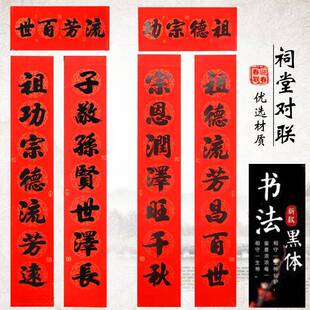 流芳百世
祖功宗德流芳遠
子敬孫賢世澤長
祖德宗功
祖德流芳昌百世
宗恩潤澤旺千秋
祠堂对联
优选材质
书法
黑体